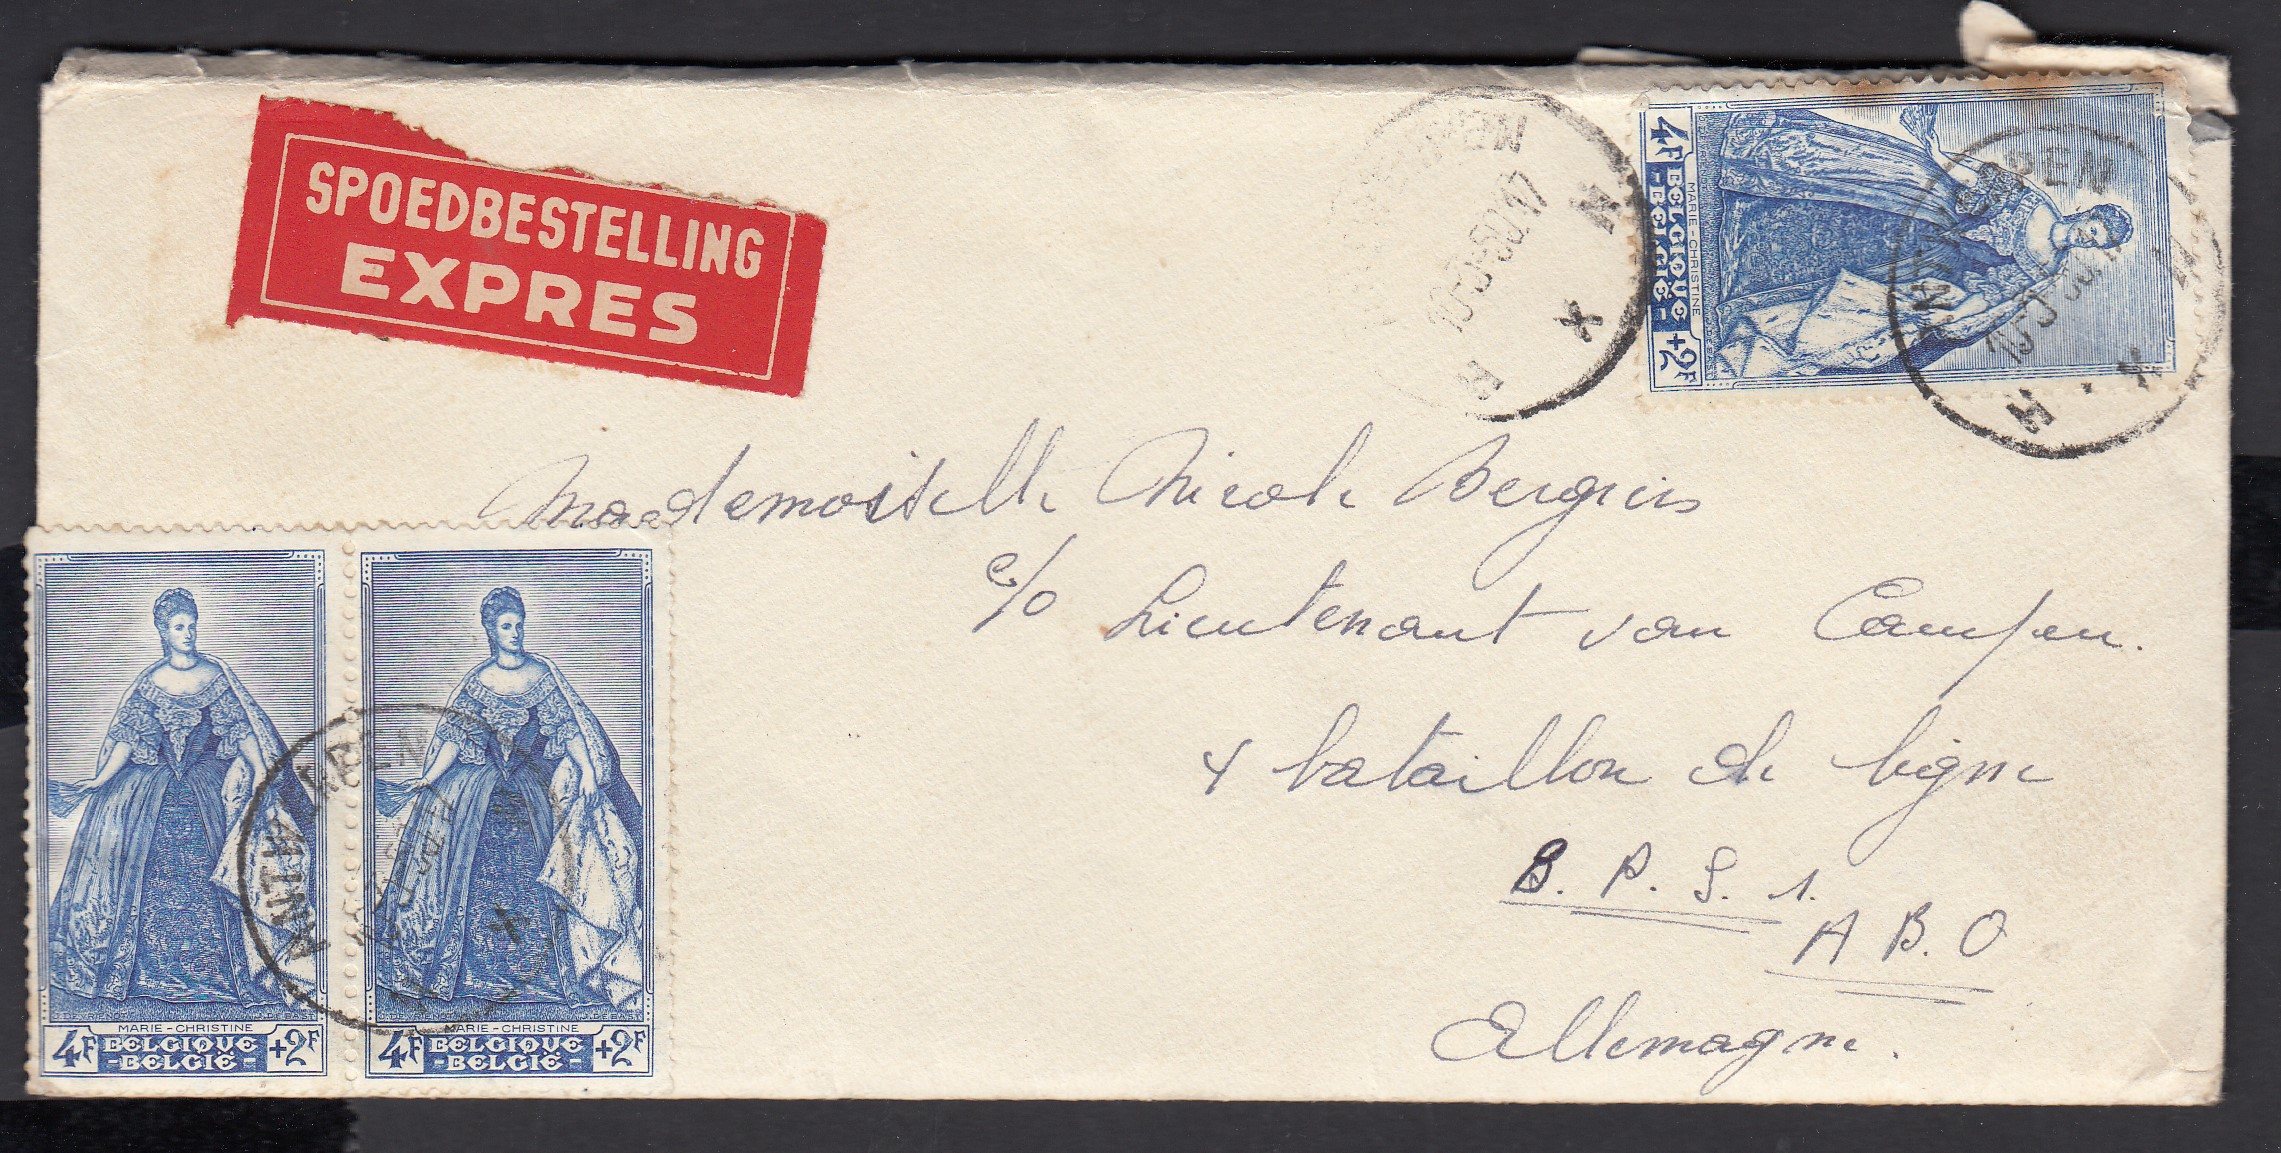 SPOEDBESTELLING
EXPRES
ANTWERPEN
4F BELGIQUE +2F
-BELGIË-
MARIE-CHRISTINE
ANTWERPEN
Mademoiselle Nicole
c/o Lieutenant van Campen.
4 bataillon de ligne
B. P. S. 1.
A B. O
Allemagne.
MARIE-CHRISTINE
4F BELGIQUE +2F
-BELGIË-
MARIE-CHRISTINE
4F BELGIQUE +2F
-BELGIË-
ANTWERPEN